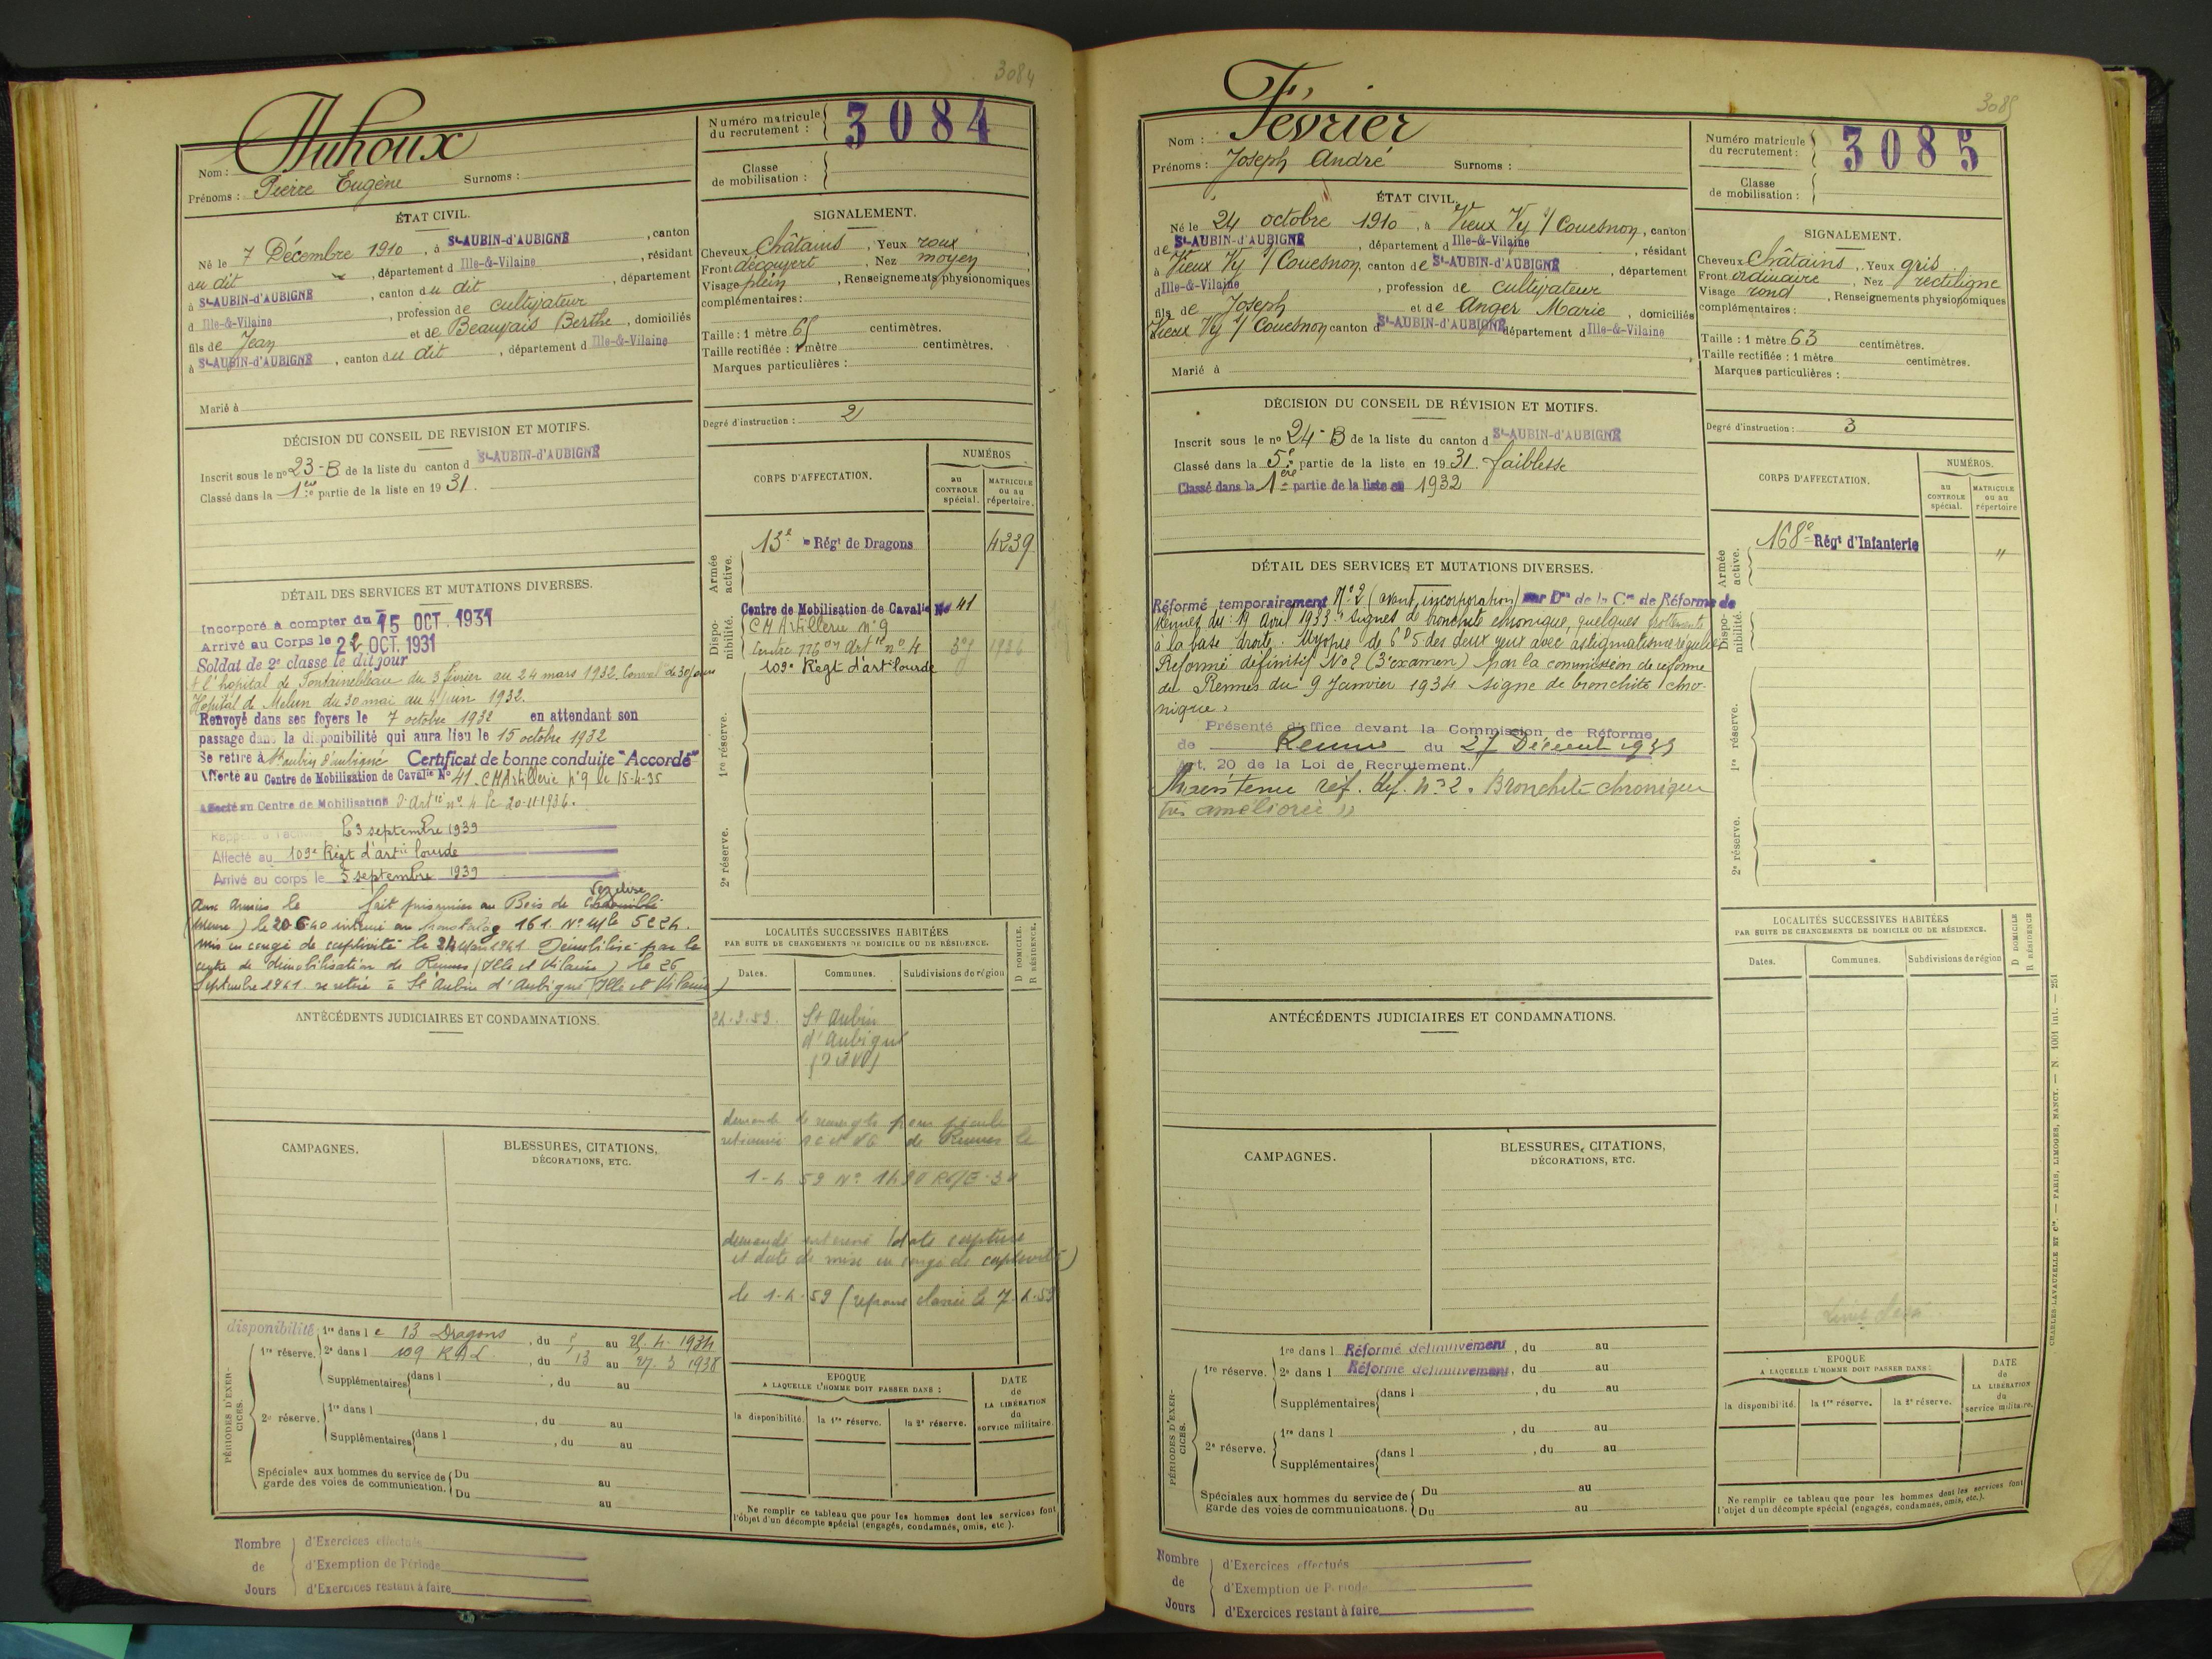 3084
Nom : Auhoux
Prénoms : Pierre Eugène Surnoms :
Numéro matricule du recrutement : 3084
Classe de mobilisation :
ÉTAT CIVIL.
Né le 7 Décembre 1910, à St-AUBIN-d'AUBIGNÉ, canton
du dit, département d Ille-&-Vilaine, résidant
à St-AUBIN-d'AUBIGNÉ, canton du dit, département
d Ille-&-Vilaine, profession de cultivateur
fils de Jean et de Beaujais Berthe, domiciliés
à St-AUBIN-d'AUBIGNÉ, canton du dit, département d Ille-&-Vilaine
Marié à
SIGNALEMENT.
Cheveux Châtains, Yeux roux
Front découvert, Nez moyen
Visage plein, Renseignements physionomiques
complémentaires :
Taille : 1 mètre 65 centimètres.
Taille rectifiée : 1 mètre centimètres.
Marques particulières :
Degré d'instruction : 2
DÉCISION DU CONSEIL DE REVISION ET MOTIFS.
Inscrit sous le n° 23-B de la liste du canton d St-AUBIN-d'AUBIGNÉ
Classé dans la 1ère partie de la liste en 1931.
DÉTAIL DES SERVICES ET MUTATIONS DIVERSES.
Incorporé à compter du 15 OCT. 1931
Arrivé au Corps le 22 OCT. 1931
Soldat de 2e classe le dit jour
à l'hôpital de Fontainebleau du 3 février au 24 mars 1932. Conval ce de 30 jours
Hôpital de Melun du 30 mai au 4 juin 1932.
Renvoyé dans ses foyers le 7 octobre 1932 en attendant son
passage dans la disponibilité qui aura lieu le 15 octobre 1932
Se retire à St aubin d'aubigné Certificat de bonne conduite "Accordé"
Affecté au Centre de Mobilisation de Cavalie No 41. CM Artillerie n° 9 le 15-4-35
Affecté au Centre de Mobilisation d'Artie n° 4 le 20-11-1936.
Rappelé à l'activité le 3 septembre 1939
Affecté au 109e Régt d'artie lourde
Arrivé au corps le 5 septembre 1939
aux armées le fait prisonnier au Bois de Vezelise
le 20 6 40 interné au 161. N° Mle 5224.
mis en congé de captivité le 1941. Démobilisé par le
centre de démobilisation de Rennes (Ille et Vilaine) le 26
Septembre 1941 se retire à St Aubin d'Aubigné (Ille et Vilaine)
CORPS D'AFFECTATION.
NUMÉROS
au CONTROLE spécial.
MATRICULE ou au répertoire.
Armée active.
13e Régt de Dragons 4239
Disponibilité.
Centre de Mobilisation de Cavalie No 41
CM Artillerie n° 9
Centre Artie n° 4 1936
109e Régt d'artie lourde
1re réserve.
2e réserve.
ANTÉCÉDENTS JUDICIAIRES ET CONDAMNATIONS.
CAMPAGNES.
BLESSURES, CITATIONS, DÉCORATIONS, ETC.
LOCALITÉS SUCCESSIVES HABITÉES
PAR SUITE DE CHANGEMENTS DE DOMICILE OU DE RÉSIDENCE.
Dates. Communes. Subdivisions de région D DOMICILE. R RÉSIDENCE.
St Aubin
d'Aubigné
demande de pour pécule
de Rennes le
demande (date capture
et date de mise en congé de captivité)
PÉRIODES D'EXERCICES.
disponibilité
1re réserve. 1re dans le 13 Dragons, du au 4. 1934
2e dans l 109 RAL, du 13 au 27. 3 1938
Supplémentaires dans l , du au
2e réserve. 1re dans l , du au
Supplémentaires dans l , du au
Spéciales aux hommes du service de garde des voies de communication. Du au
Du au
EPOQUE
A LAQUELLE L'HOMME DOIT PASSER DANS :
la disponibilité. la 1re réserve. la 2e réserve.
DATE de LA LIBÉRATION du service militaire.
Ne remplir ce tableau que pour les hommes dont les services font
l'objet d'un décompte spécial (engagés, condamnés, omis, etc.).
Nombre de Jours
d'Exercices effectués
d'Exemption de Période
d'Exercices restant à faire
3085
Nom : Février
Prénoms : Joseph André Surnoms :
Numéro matricule du recrutement : 3085
Classe de mobilisation :
ÉTAT CIVIL.
Né le 24 octobre 1910, à Vieux Vy s/ Couesnon, canton
de St-AUBIN-d'AUBIGNÉ, département d Ille-&-Vilaine, résidant
à Vieux Vy s/ Couesnon, canton de St-AUBIN-d'AUBIGNÉ, département
d Ille-&-Vilaine, profession de cultivateur
fils de Joseph et de Anger Marie, domiciliés
Vieux Vy s/ Couesnon canton d St-AUBIN-d'AUBIGNÉ département d Ille-&-Vilaine
Marié à
SIGNALEMENT.
Cheveux Châtains, Yeux gris
Front ordinaire, Nez rectiligne
Visage rond, Renseignements physionomiques
complémentaires :
Taille : 1 mètre 63 centimètres.
Taille rectifiée : 1 mètre centimètres.
Marques particulières :
Degré d'instruction : 3
DÉCISION DU CONSEIL DE RÉVISION ET MOTIFS.
Inscrit sous le n° 24-B de la liste du canton d St-AUBIN-d'AUBIGNÉ
Classé dans la 5e partie de la liste en 1931. faiblesse
Classé dans la 1ère partie de la liste en 1932
DÉTAIL DES SERVICES ET MUTATIONS DIVERSES.
Réformé temporairement N° 2 (avant incorporation) par Don de la Con de Réforme de
Rennes du 19 avril 1933 "Signes de bronchite chronique, quelques frottements
à la base droite. Myopie de 6D5 des deux yeux avec astigmatisme régulier"
Réformé définitif No 2 (3e examen) par la commission de réforme
de Rennes du 9 Janvier 1934 signe de bronchite chro-
nique.
Présenté d'office devant la Commission de Réforme
de Rennes du 27 Décembre 1939
Art. 20 de la Loi de Recrutement.
Maintenu réf. déf. n° 2. Bronchite chronique
très améliorée »
CORPS D'AFFECTATION.
NUMÉROS.
au CONTROLE spécial.
MATRICULE ou au répertoire
Armée active.
168e Régt d'Infanterie "
Disponibilité.
1re réserve.
2e réserve.
ANTÉCÉDENTS JUDICIAIRES ET CONDAMNATIONS.
CAMPAGNES.
BLESSURES, CITATIONS, DÉCORATIONS, ETC.
LOCALITÉS SUCCESSIVES HABITÉES
PAR SUITE DE CHANGEMENTS DE DOMICILE OU DE RÉSIDENCE.
Dates. Communes. Subdivisions de région D DOMICILE R RÉSIDENCE
PÉRIODES D'EXERCICES.
1re réserve. 1re dans l Réformé définitivement, du au
2e dans l Réformé définitivement, du au
Supplémentaires dans l , du au
2e réserve. 1re dans l , du au
Supplémentaires dans l , du au
Spéciales aux hommes du service de garde des voies de communications. Du au
Du au
EPOQUE
A LAQUELLE L'HOMME DOIT PASSER DANS :
la disponibilité. la 1re réserve. la 2e réserve.
DATE de LA LIBÉRATION du service militaire.
Ne remplir ce tableau que pour les hommes dont les services font
l'objet d'un décompte spécial (engagés, condamnés, omis, etc.).
CHARLES-LAVAUZELLE ET Cie. — PARIS, LIMOGES, NANCY. — N 1001 int. — 251
Nombre de Jours
d'Exercices effectués
d'Exemption de Période
d'Exercices restant à faire